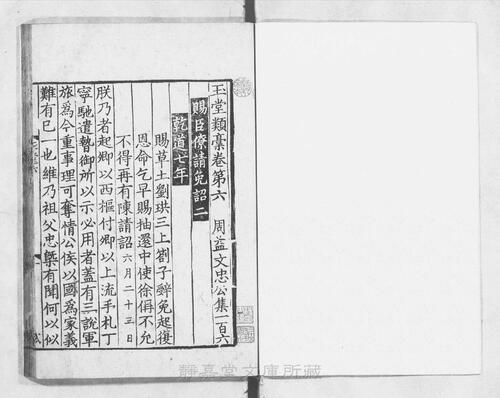 玉堂類稾卷第六 周益文忠公集一百六
賜臣僚請免詔二
乾道七年
賜草土劉珙三上劄子辭免起復
恩命乞早賜抽還中使徐偁不允
不得再有陳請詔六月二十三日
朕乃者起卿以西樞付卿以上流手札丁
寧馳遣贄御所以示必用者蓋有三說軍
旅爲今重事理可奪情公侯以國爲家義
難有已一也維乃祖父忠槩有聞何以似
靜嘉堂文庫所藏